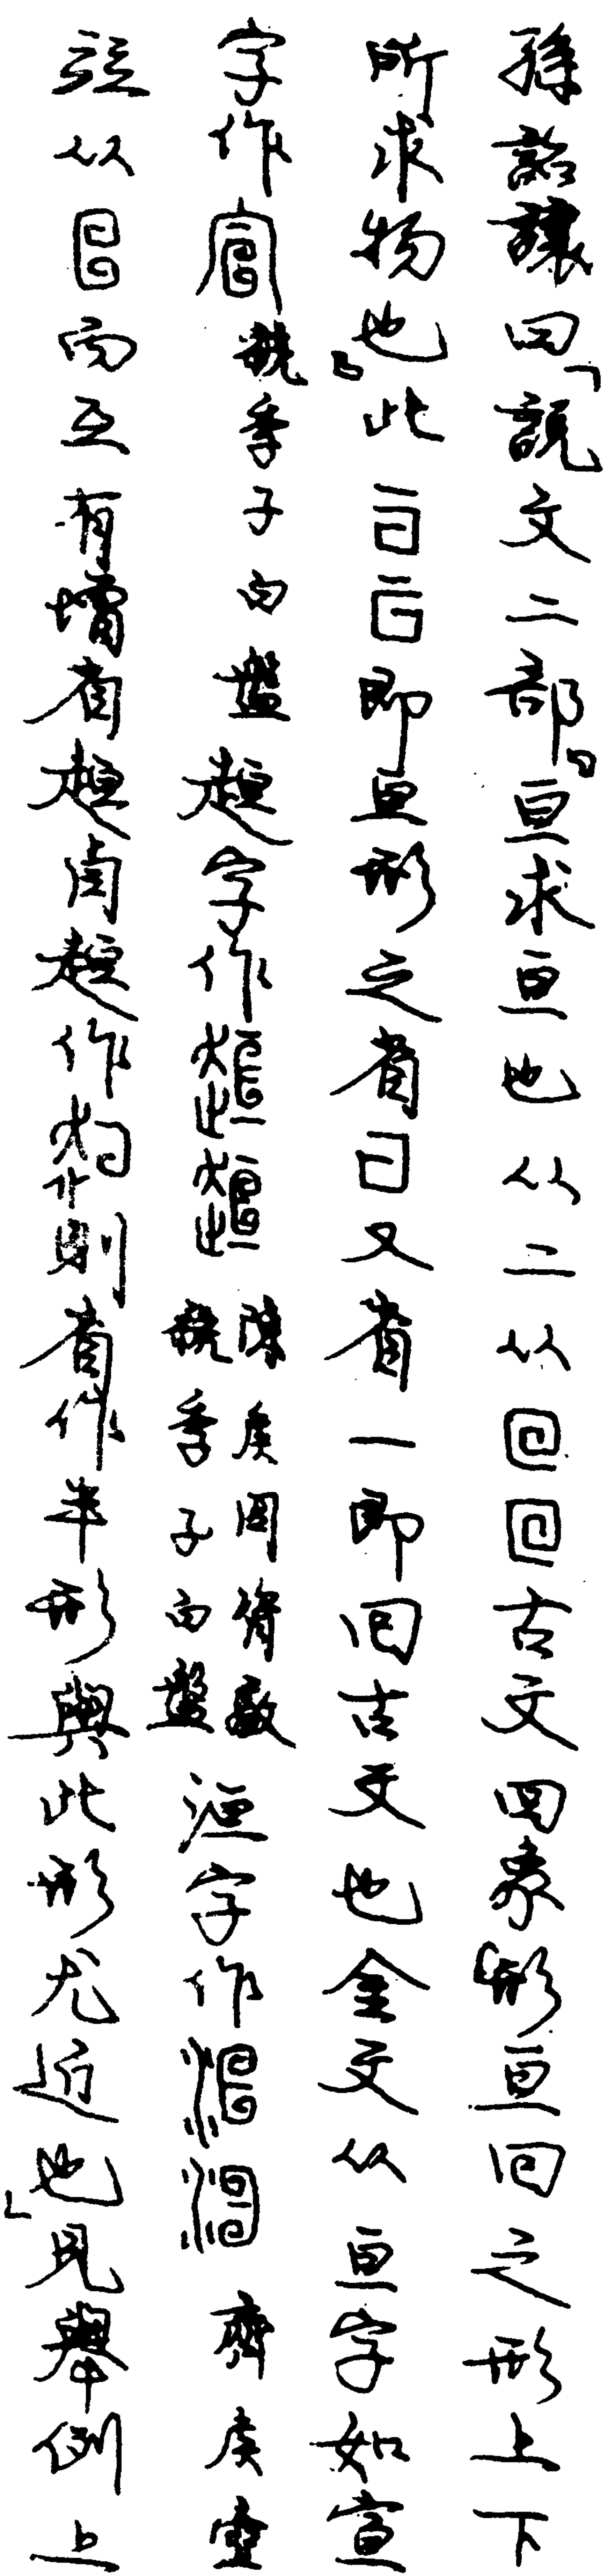 孫詒讓曰「說文二部曰亘求亘也从二从囘囘古文回象形亘回之形上下
所求物也」此即亘形之省又省一即回古文也金文从亘字如宣
字作虢季子白盤趄字作陳矦因𬺈敦虢季子白盤洹字作齊矦壺
竝从而互有增省趄省趄作則省作半形與此形尤近也」見舉例上